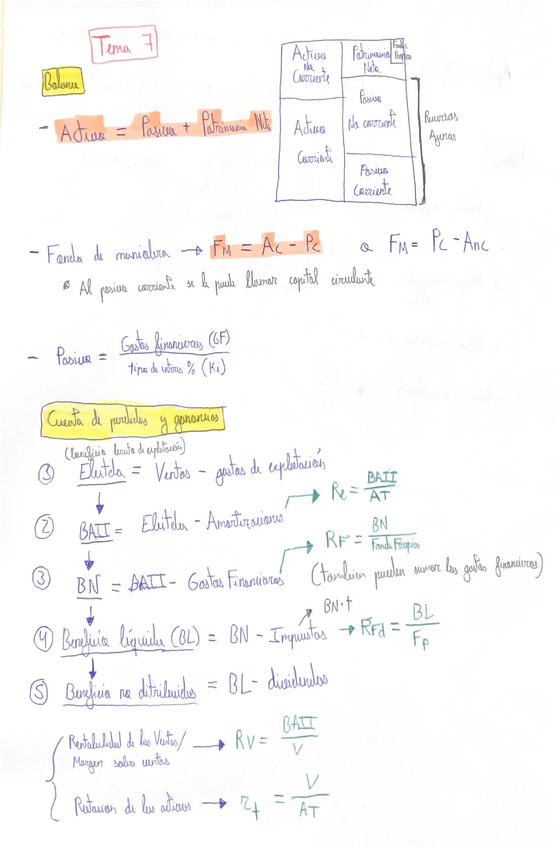 Tema 7
Balance
- Activo = Pasivo + Patrimonio Neto
Activo No Corriente
Patrimonio Neto
Fondos Propios
Activo Corriente
Pasivo No corriente
Pasivo Corriente
Recursos Ajenos
- Fondo de maniobra → FM = AC - PC o FM = PC - ANC
* Al pasivo corriente se le puede llamar capital circulante
- Pasivo = Gastos financieros (GF) / tipo de interes % (Ki)
Cuenta de perdidas y ganancias
(beneficio bruto de explotación)
① Ebitda = Ventas - gastos de explotación
Re = BAII / AT
② BAII = Ebitda - Amortizaciones
RF = BN / Fondo Propios
③ BN = BAII - Gastos Financieros (tambien pueden sumar los gastos financieros)
BN·t
④ Beneficio líquido (BL) = BN - Impustos → RFd = BL / FP
⑤ Beneficio no ditribuidos = BL - dividendos
Rentabilidad de las Ventas/
Margen sobre ventas → RV = BAII / V
Rotacion de los activos → rt = V / AT